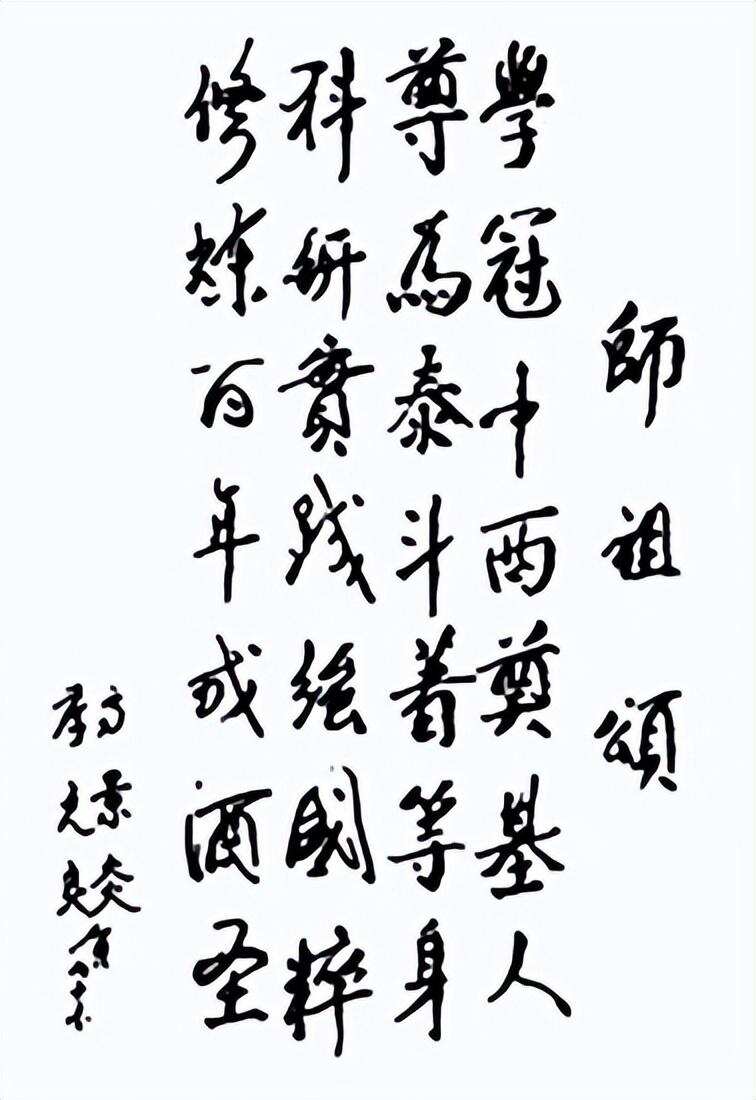 師祖頌
學冠中西奠基人
尊為泰斗著等身
科研實践國粹
修煉百年成酒圣